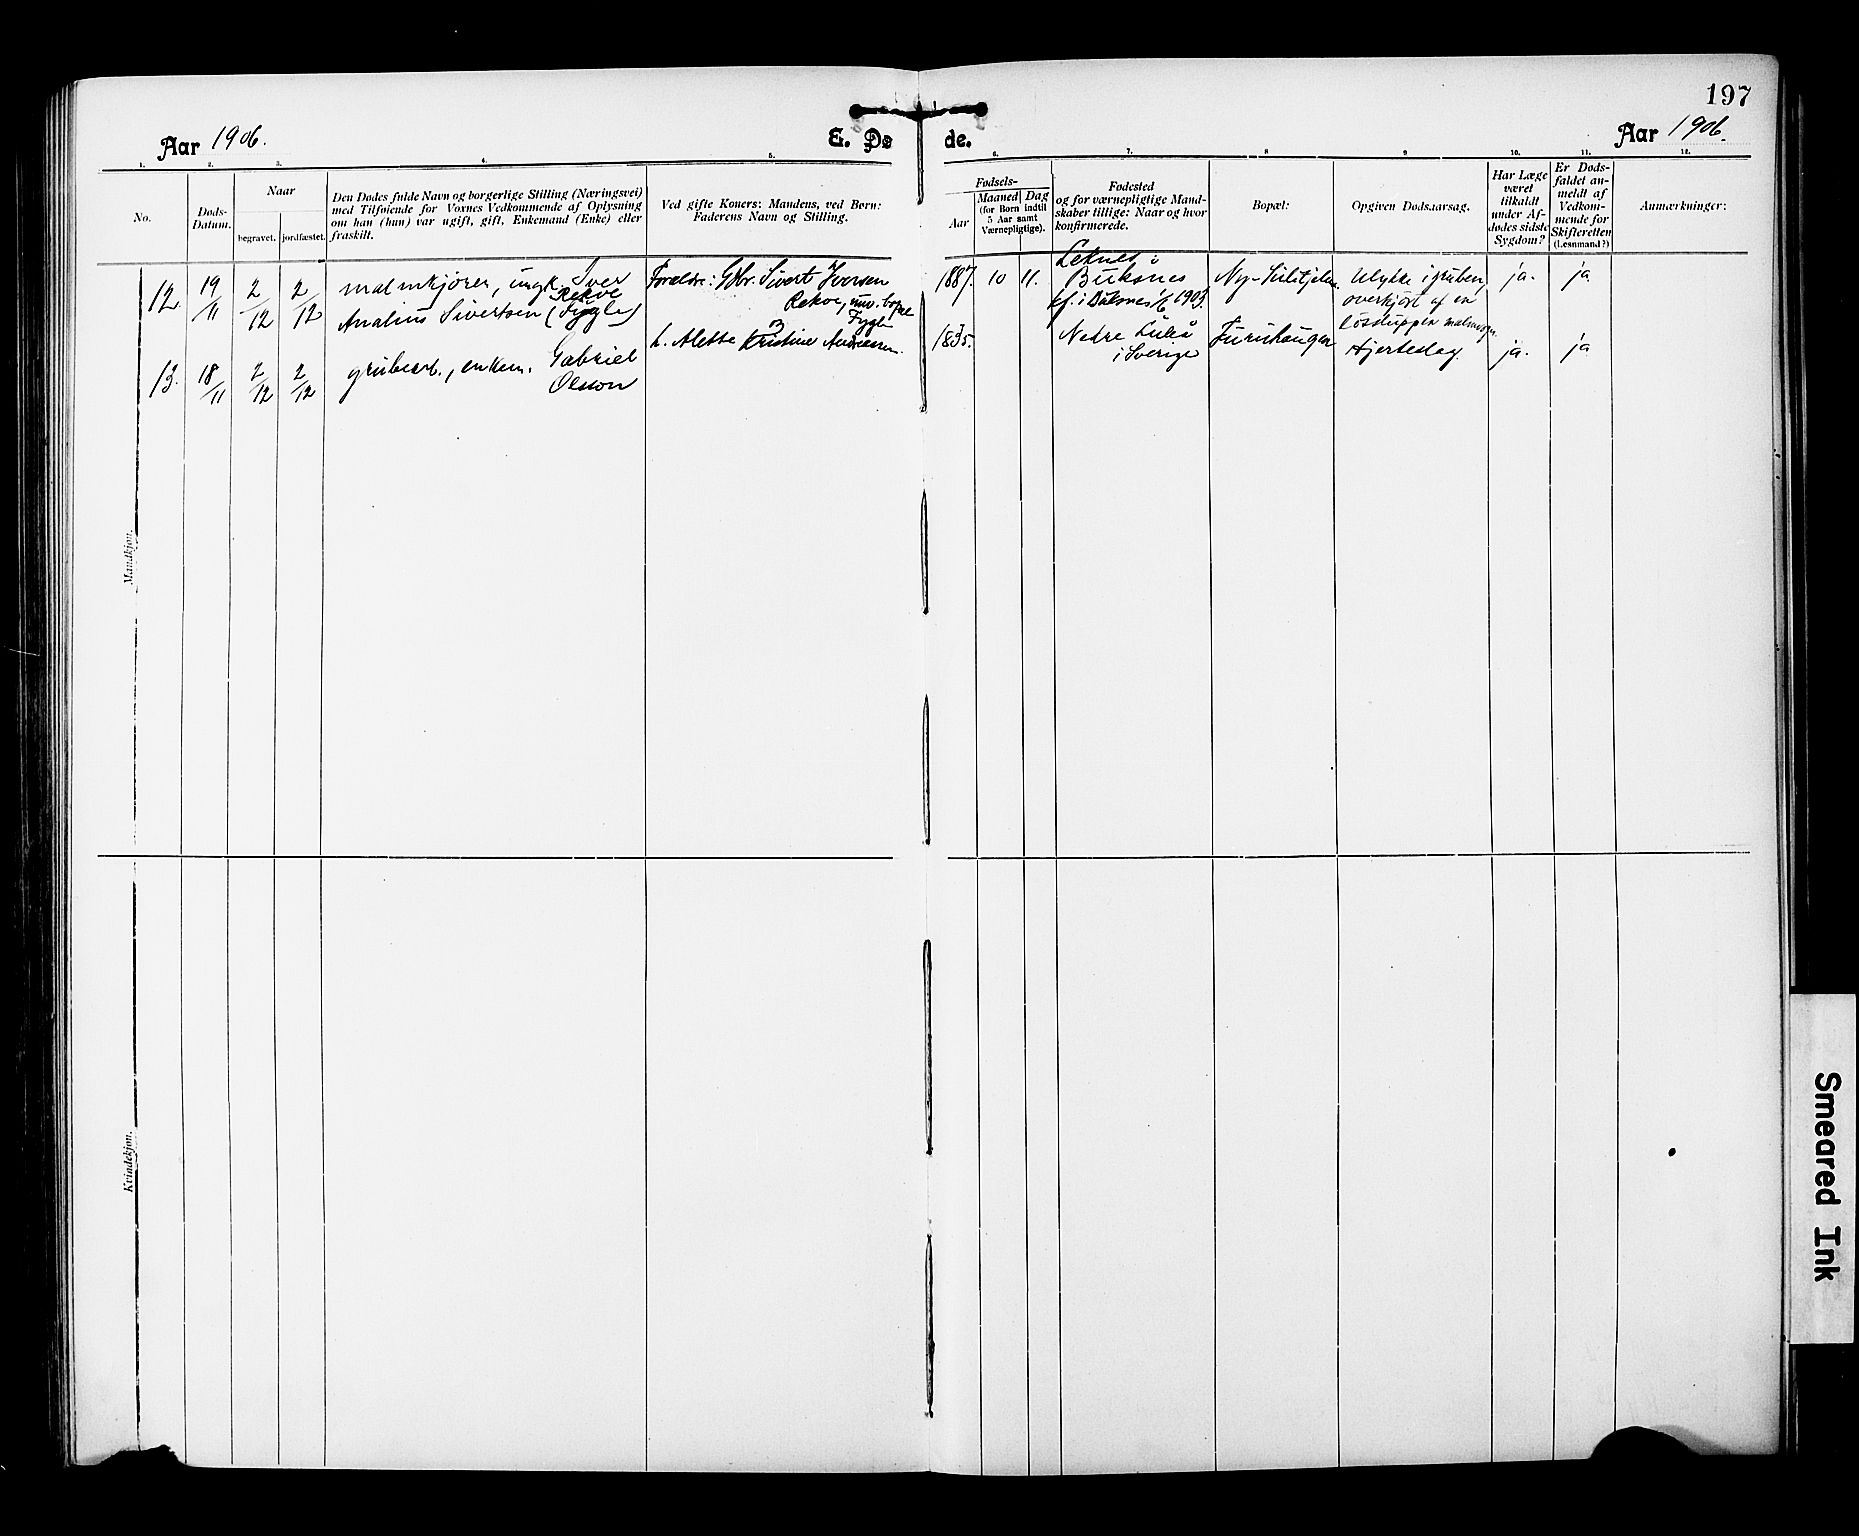 197
Aar 1906.
E. Dø
de.
Aar 1906.
1.
2.
3.
4.
5.
6.
7.
8
9
10.
11.
12.
No.
Døds-
Datum.
Naar
begravet.
jordfæstet.
Den Dødes fulde Navn og borgerlige Stilling (Næringsvei)
med Tilføiende for Voxnes Vedkommende af Oplysning
om han (hun) var ugift, gift, Enkemand (Enke) eller
fraskilt.
Ved gifte Koner: Mandens, ved Børn:
Faderens Navn og Stilling.
Fødsels-
Aar
Maaned
Dag
(for Børn indtil
5 Aar samt
Værnepligtige).
Fødested
og for værnepligtige Mand-
skaber tillige: Naar og hvor
konfirmerede.
Bopæl:
Opgiven Dødsaarsag.
Har Læge
været
tilkaldt
under Af-
dødes sidste
Sygdom?
Er Døds-
faldet an-
meldt af
Vedkom-
mende for
Skifteretten
(Lensmand?)
Anmærkninger:
Mandkjøn.
12.
19/11
2/12
2/12
malmkjører, ungk.
Rekve
Analius Sivertsen (Fygle)
Forældre: Gbr. Sivert Iversen
Rekve, nuv. bopæl
Fygle
h. Alette Kristine Andresen.
1887.
10
11.
Leknes i
Buksnes
kf. i Buksnes 1/6 1903.
Ny-Sulitjelma
Ulykke i gruben,
overkjørt af en
løsluppen malmvogn.
ja.
ja
13.
18/11
2/12
2/12
grubearb., enkem. Gabriel
Olsson
1835.
Nedre Luleå
i Sverige
Furuhaugen
Hjerteslag.
ja.
ja
Kvindekjøn.
Smeared Ink